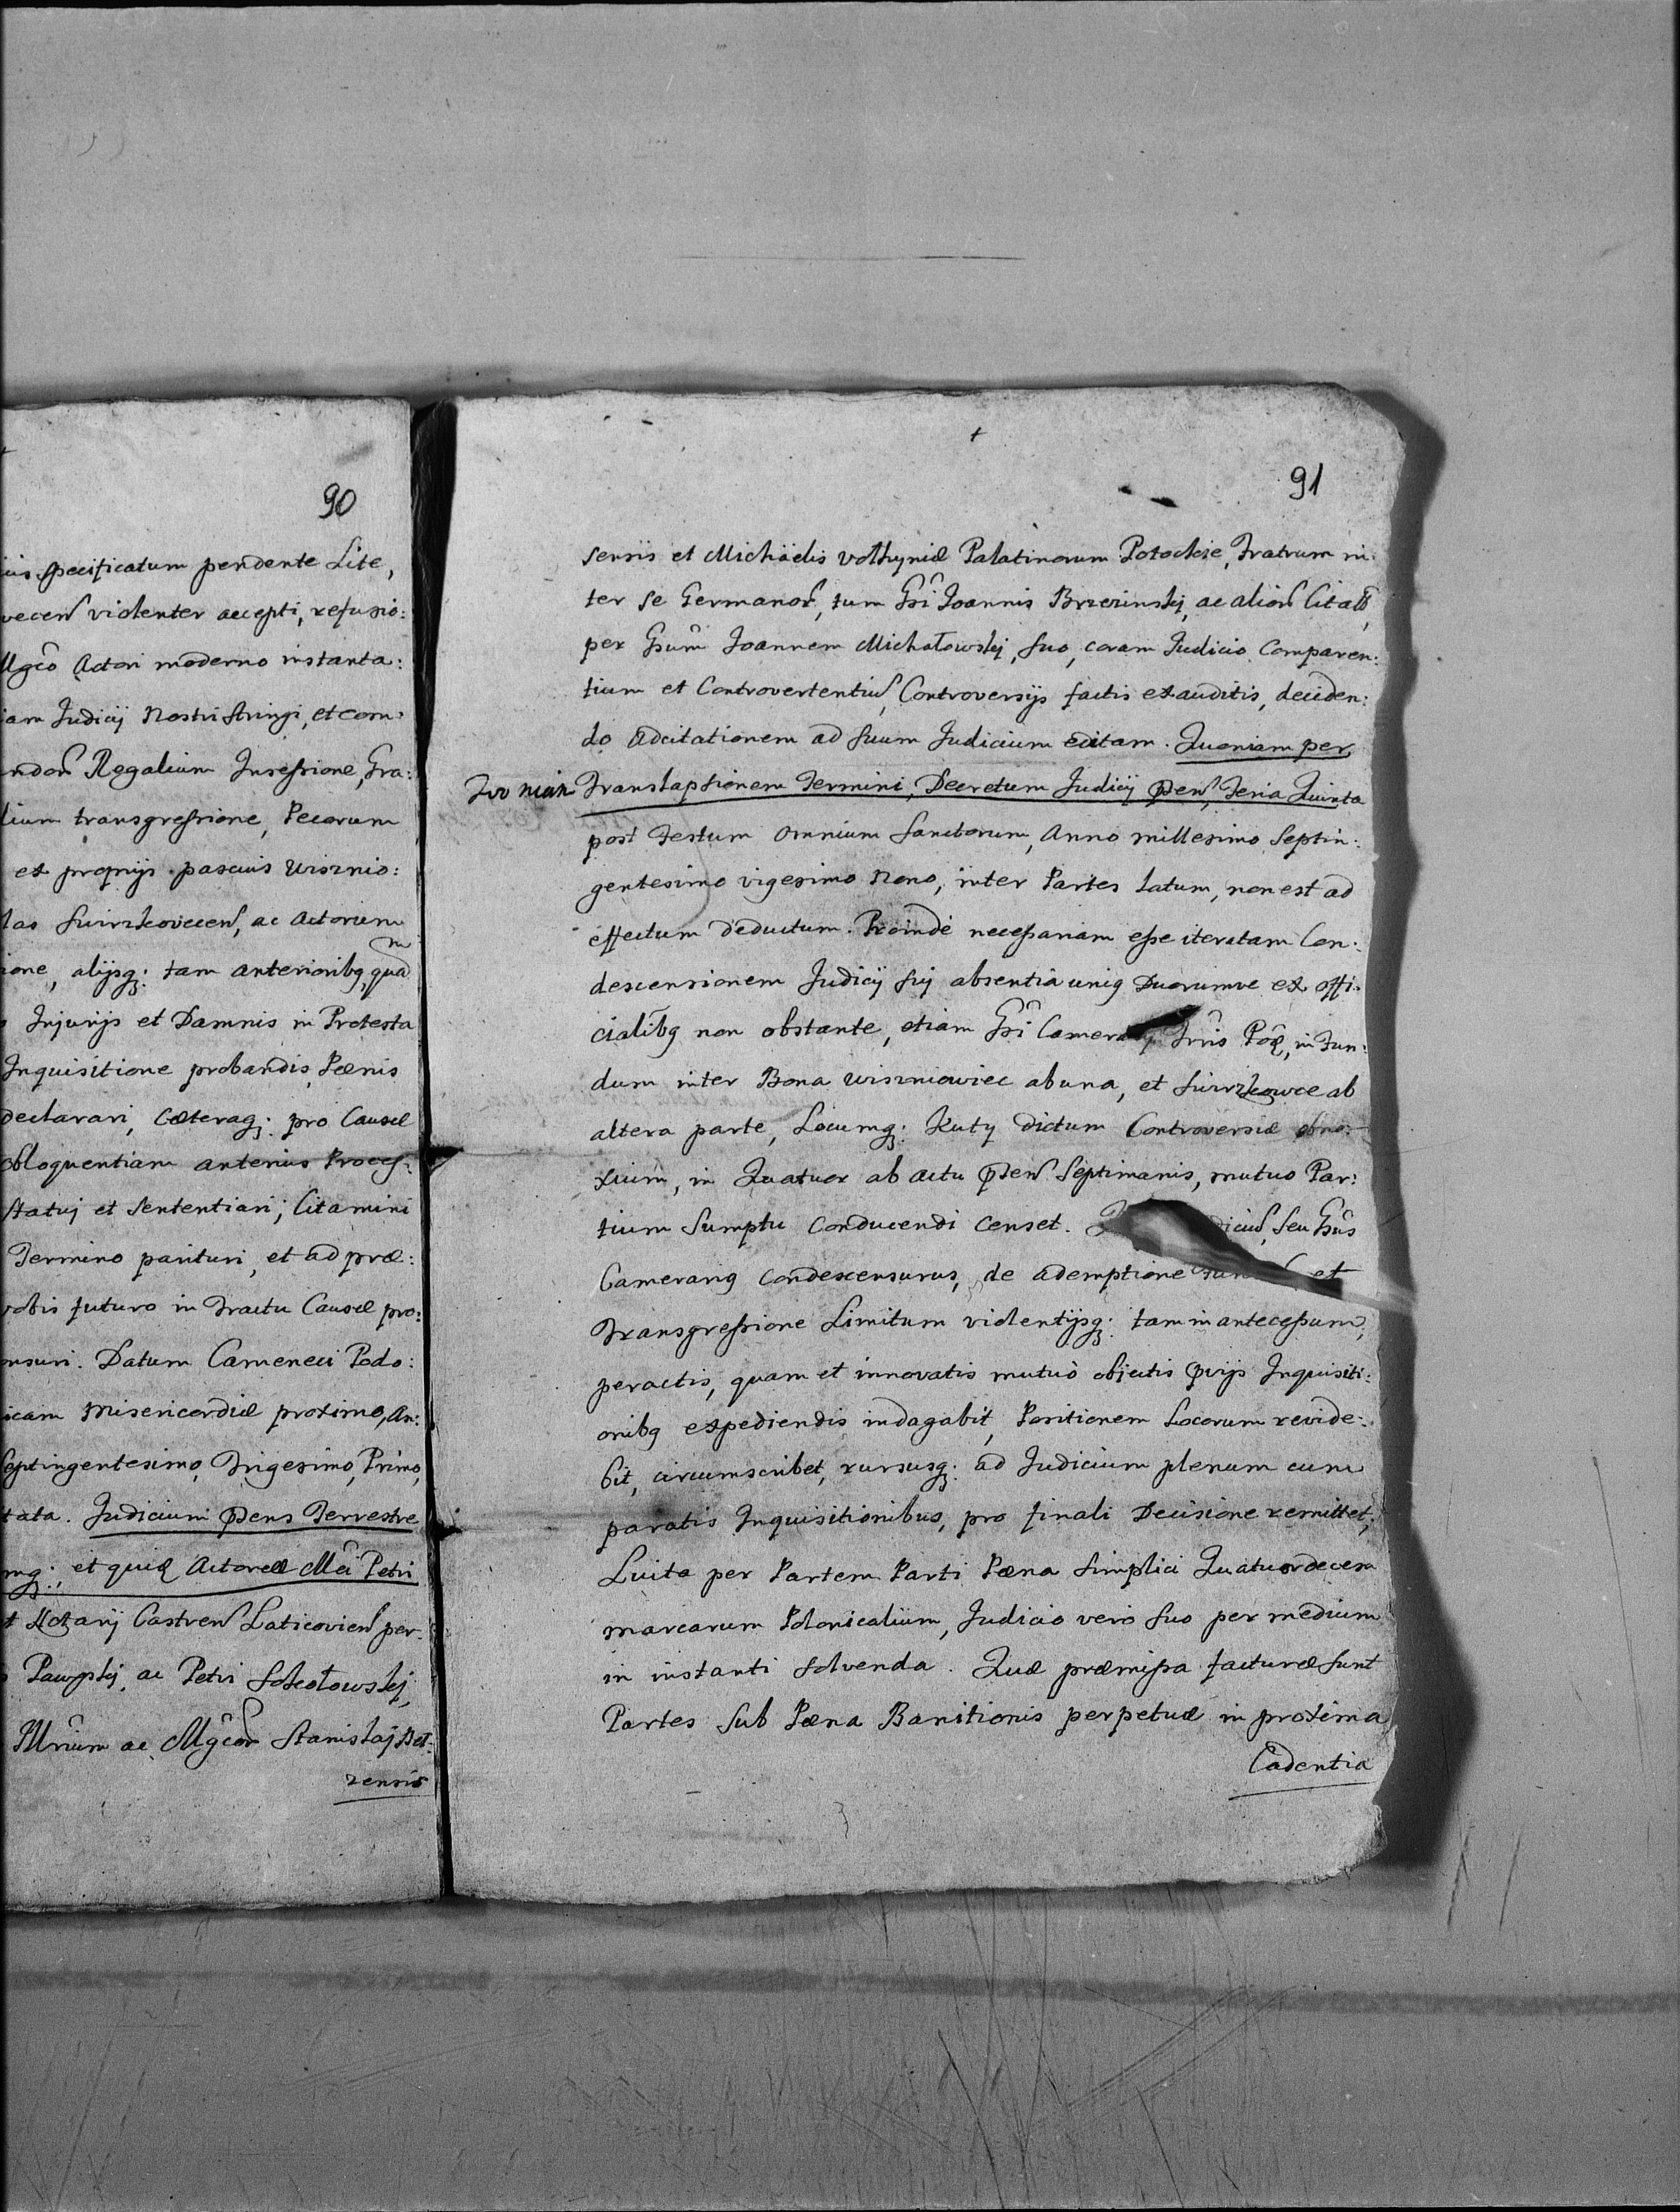 90
ius specificatum pendente Lite,
vecen violenter accepti, refusio:
Mgco Actori moderno instanta:
iam Judicij Nostri stringi, et com:
Regalium Insessione, Gra:
lium transgressione, Pecorum
ex proprijs pascuis Wisznio:
las Swirzkovecen, ac Actorum
ione, alijsq: tam anterioribq, quam
Injurijs et Damnis in Protesta
Inquisitione probandis, Pænis
declarari, Cæteraq: pro Causæ
obloquentiam anterius Process:
statuj et sententiari; Citamini
Termino parituri, et ad præ:
vobis futuro in Tractu Causæ pro:
nsuri. Datum Cameneci Podo:
icam Misericordiæ proximo, An:
Septingentesimo, Trigesimo, Primo,
tata. Judicium Pdens Terrestre
mq: et quid Actoreæ Mci Petri
t Notarij Castren Laticovien per
Pawski, ac Petri Sokołowskij,
Illrium ac Mgcor Stanislaj Bel:
zensis
91
sensis et Michäelis Volhyniæ Palatinorum Potockie, Fratrum in:
ter se Germanor, tum Gsi Joannis Brzezinskij, ac alior Citator,
per Gsum Joannem Michałowskij, suo, coram Judicio Comparen:
tium et Controvertentiu, Controversijs factis exauditis, deciden:
do Adcitationem ad suum Judicium editam. Quoniam per
Translapsionem Termini, Decretum Judicij Pden, Feria Quinta
post Festum Omnium Sanctorum, Anno millesimo Septin:
gentesimo vigesimo Nono, inter Partes latum, non est ad
effectum deductum. Proindè necessariam esse iteratam Con:
descensionem Judicij sui absentia uniq Duorumve ex offi:
cialibq non obstante, etiam Gsi Camerarij Trris Pod, in Fun:
dum inter Bona Wiszniowiec ab una, et Swirzkowce ab
altera parte, Locumq: Kuty dictum Controversiæ obno:
xium, in Quatuor ab actu Pden Septimanis, mutuo Par:
tium Sumptu conducendi censet. seu Gsus
Camerariq condescensurus, de ademptione et
Transgressione Limitum violentijsq: tam in antecessum,
peractis, quam et innovatis mutuò objectis pvijs Inquisiti:
onibq expediendis indagabit, Positionem Locorum revide:
bit, circumscribet, rursusq: ad Judicium plenum cum
paratis Inquisitionibus, pro finali Decisione remittet;
Luita per Partem Parti Pæna simplici Quatuordecem
marcarum Polonicalium, Judicio verò suo per medium
in instanti solvenda. Quæ præmissa facturæ sunt
Partes sub Pæna Banitionis perpetuæ in proxima
Cadentia